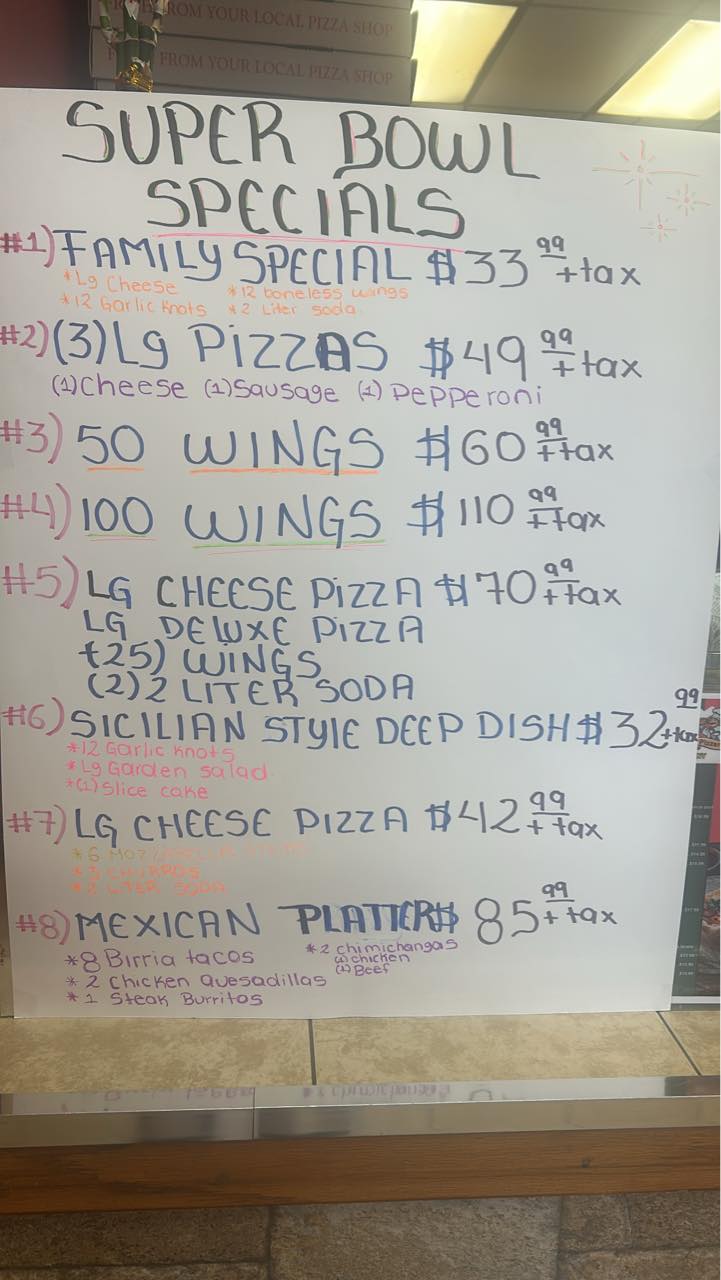 FROM YOUR LOCAL PIZZA SHOP
FROM YOUR LOCAL PIZZA SHOP
SUPER BOWL
SPECIALS
#1) FAMILY SPECIAL $33 99 + tax
*Lg Cheese *12 boneless wings
*12 Garlic Knots *2 Liter soda
#2) (3) Lg PiZZAS $49 99 + tax
(1) Cheese (1) Sausage (1) Pepperoni
#3) 50 WINGS $60 99 + tax
#4) 100 WINGS $110 99 + tax
#5) LG CHEESE PiZZA $70 99 + tax
LG DELUXE PIZZA
(25) WINGS
(2) 2 LITER SODA
#6) SICILIAN STYlE DEEP DISH $32 99 + tax
*12 Garlic Knots
*Lg Garden salad
*(1) Slice cake
#7) LG CHEESE PIZZA $42 99 + tax
*6 MOZZARELLA
CHURROS
LITER SODA
#8) MEXICAN PLATTER $85 99 + tax
*8 Birria tacos *2 chimichangas
(1) chicken
* 2 Chicken Quesadillas (1) Beef
* 1 Steak Burritos